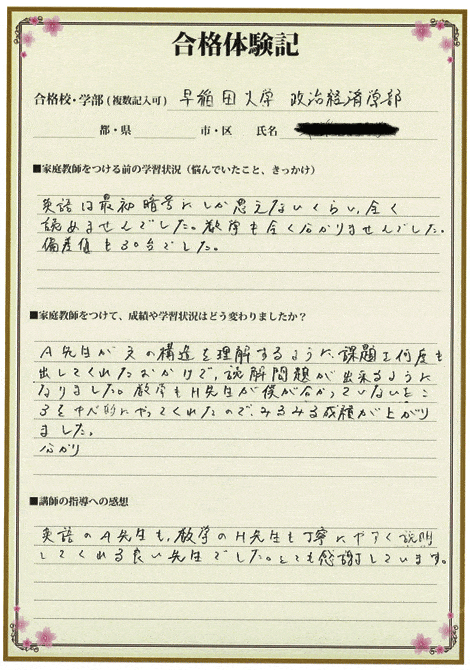 合格体験記
合格校・学部(複数記入可) 早稲田大学 政治経済学部
都・県 市・区 氏名
■家庭教師をつける前の学習状況(悩んでいたこと、きっかけ)
英語は最初暗号にしか思えないくらい、全く
読めませんでした。数学も全く分かりませんでした。
偏差値も30台でした。
■家庭教師をつけて、成績や学習状況はどう変わりましたか?
A先生が文の構造を理解するように、課題を何度も
出してくれたおかげで、読解問題が出来るように
なりました。数学もH先生が僕が分かっていないとこ
ろを やってくれたので、みるみる成績が上がり
ました。
分かり
■講師の指導への感想
英語のA先生も、数学のH先生も丁寧に 説明
してくれる良い先生でした。とても感謝しています。